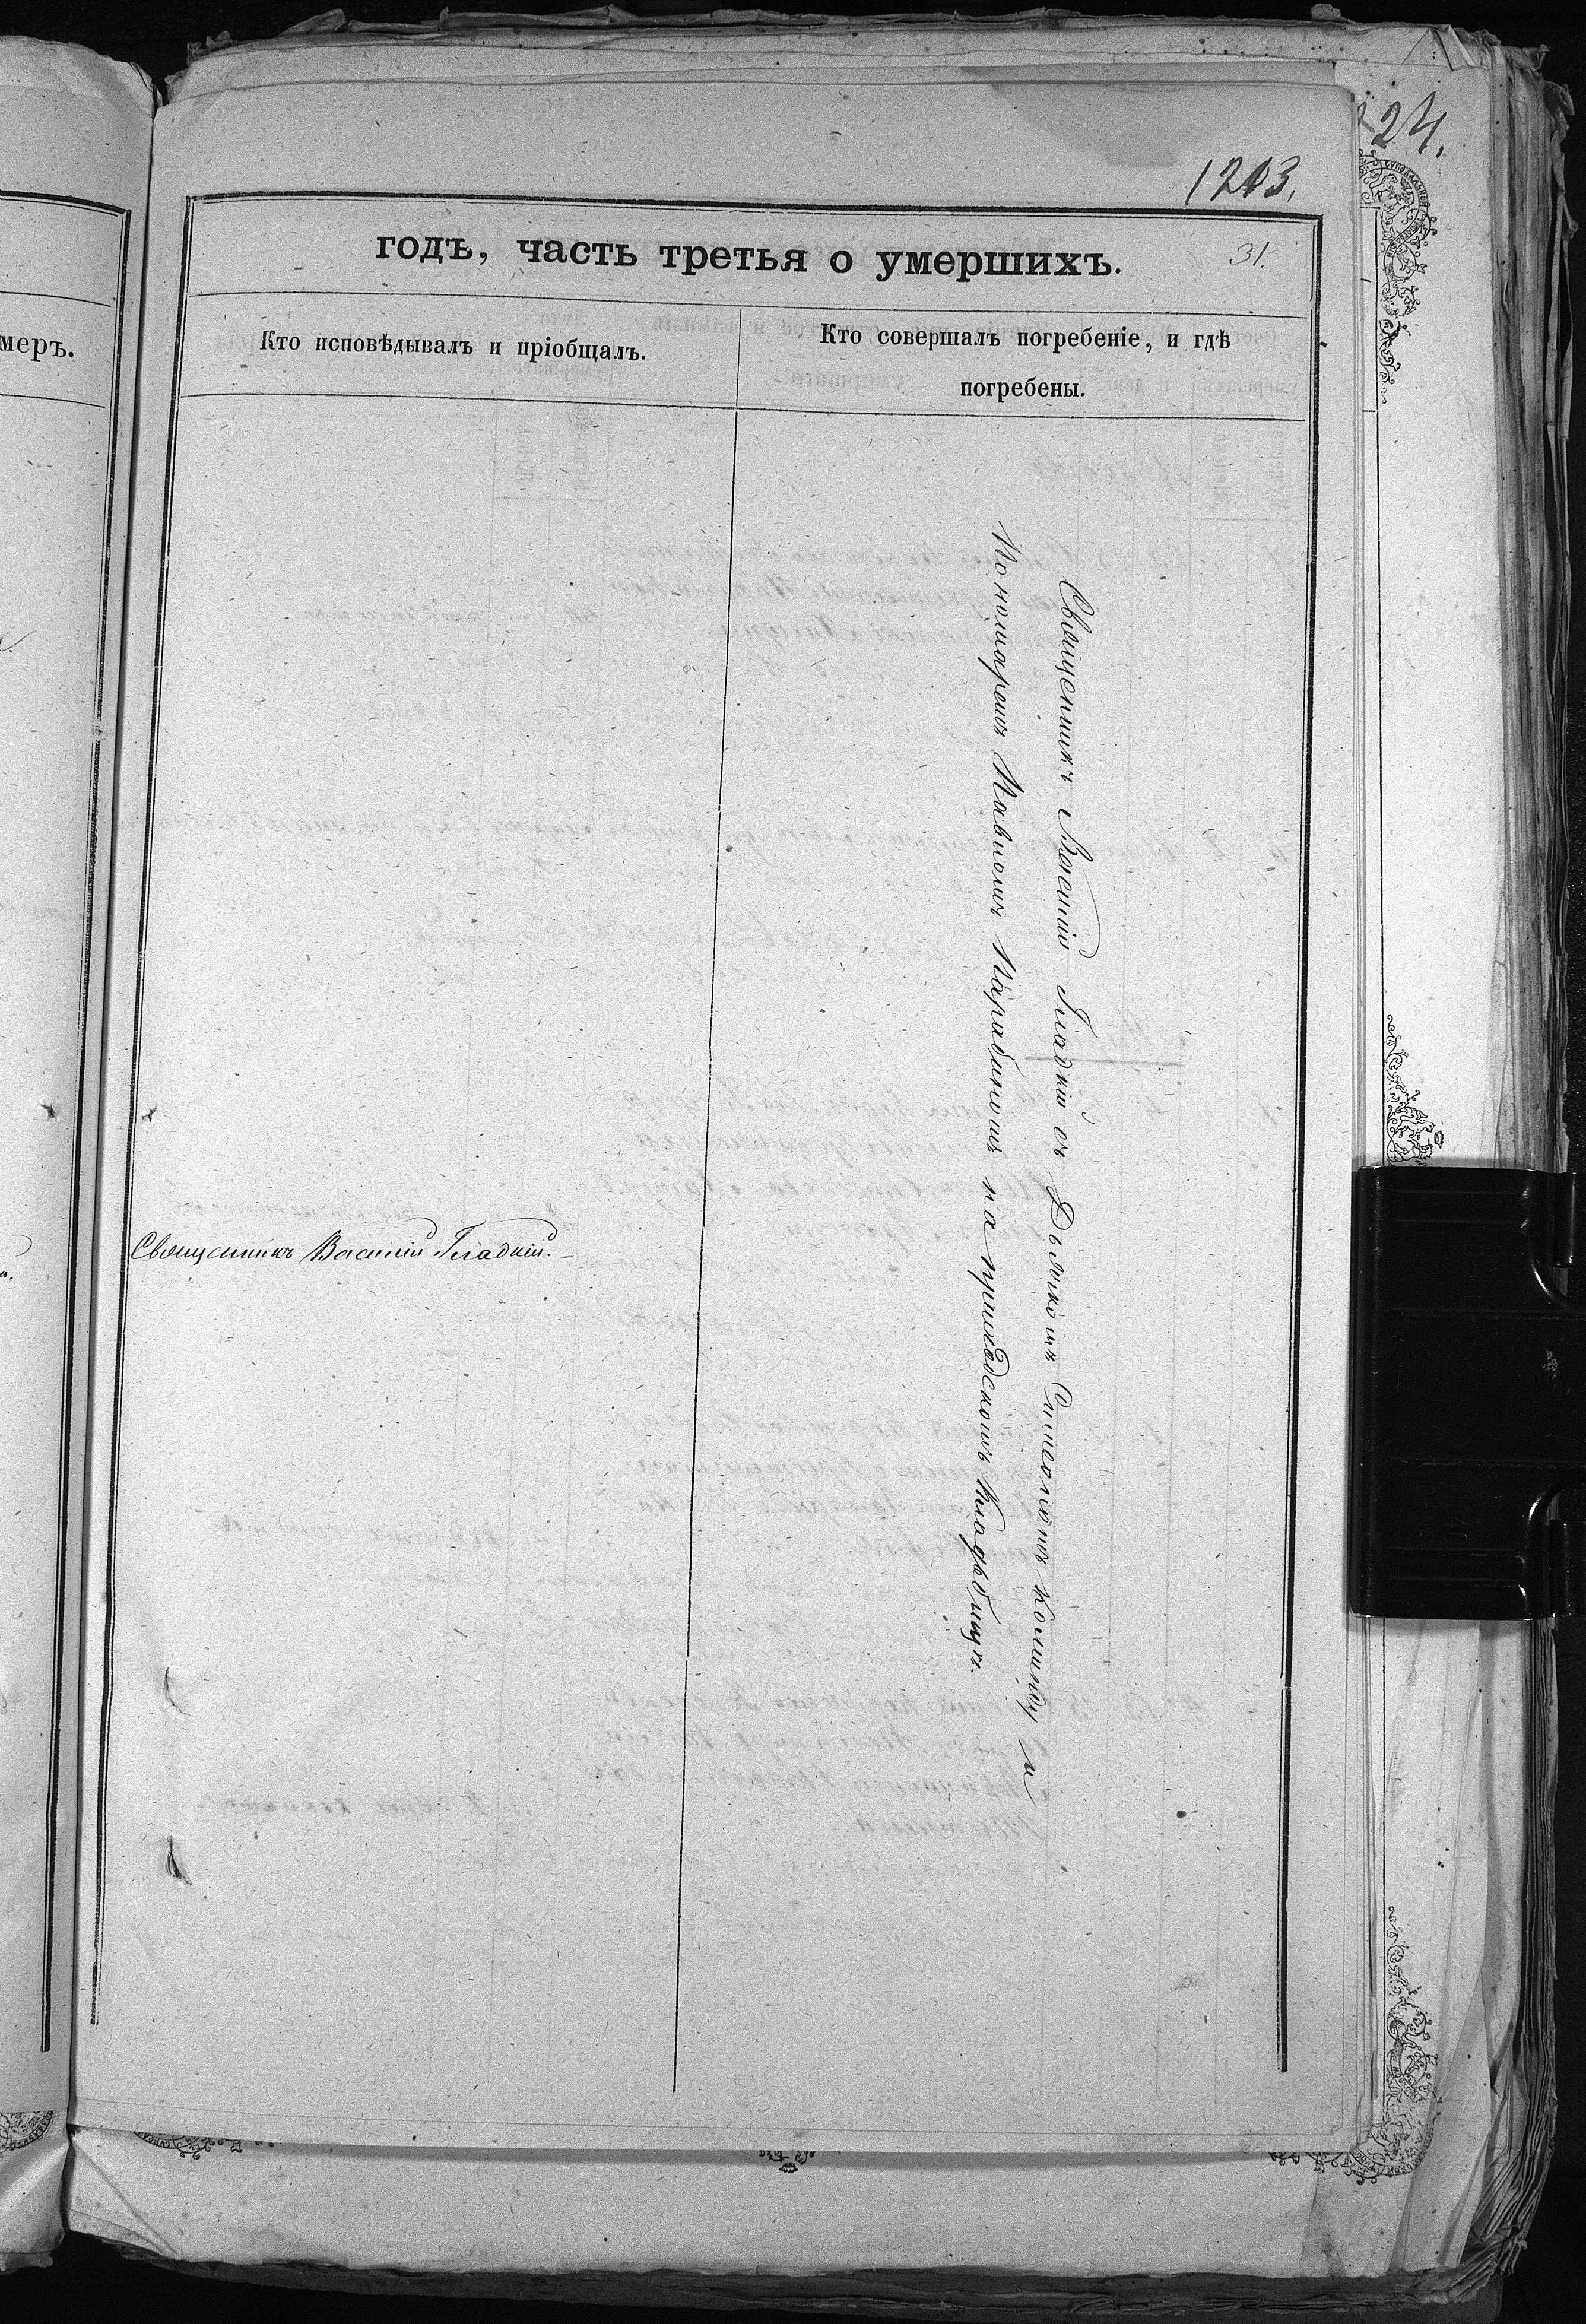 24.
1203.
годъ, часть третья о умершихъ.
31.
меръ.
Кто исповѣдывалъ и пріобщалъ.
Кто совершалъ погребеніе, и гдѣ
погребены.
Священникъ Василій Гладкій съ Дьячкомъ Симеономъ и
Пономаремъ Павломъ на приходскомъ кладбищѣ.
Священникъ Василій Гладкій.